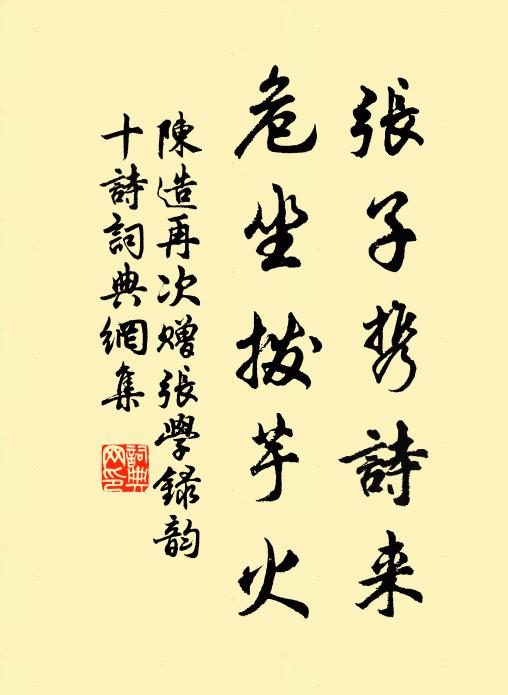 張子携詩来
危坐拨芋火
陳造再次贈張學録韵
十詩詞典網集
詞典网印